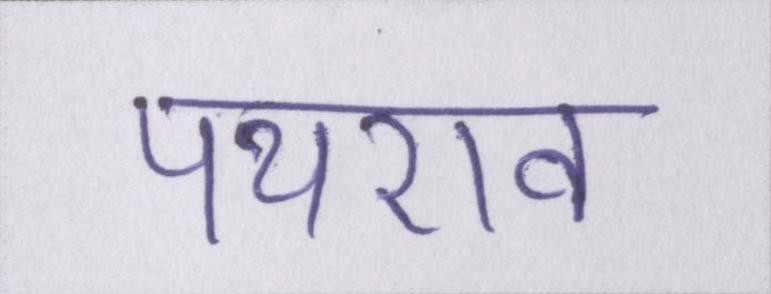 पथराव